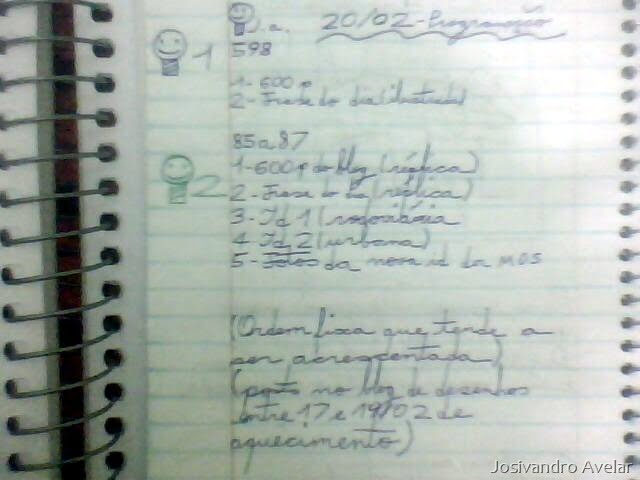 20/02 - Programação
1
598
1 - 600 p
2 - Frase do dia (ilustrada)
85 a 87
2
1 - 600 p do blog (réplica)
2 - Frase do dia (réplica)
3 - Id 1 (rodoviária
4 Id 2 (urbana)
5 - Fotos da nova id da MOS
(Ordem fixa que tende a
ser acrescentada)
(posts no blog de desenhos
entre 17 e 19/02 de
aquecimento)
Josivandro Avelar